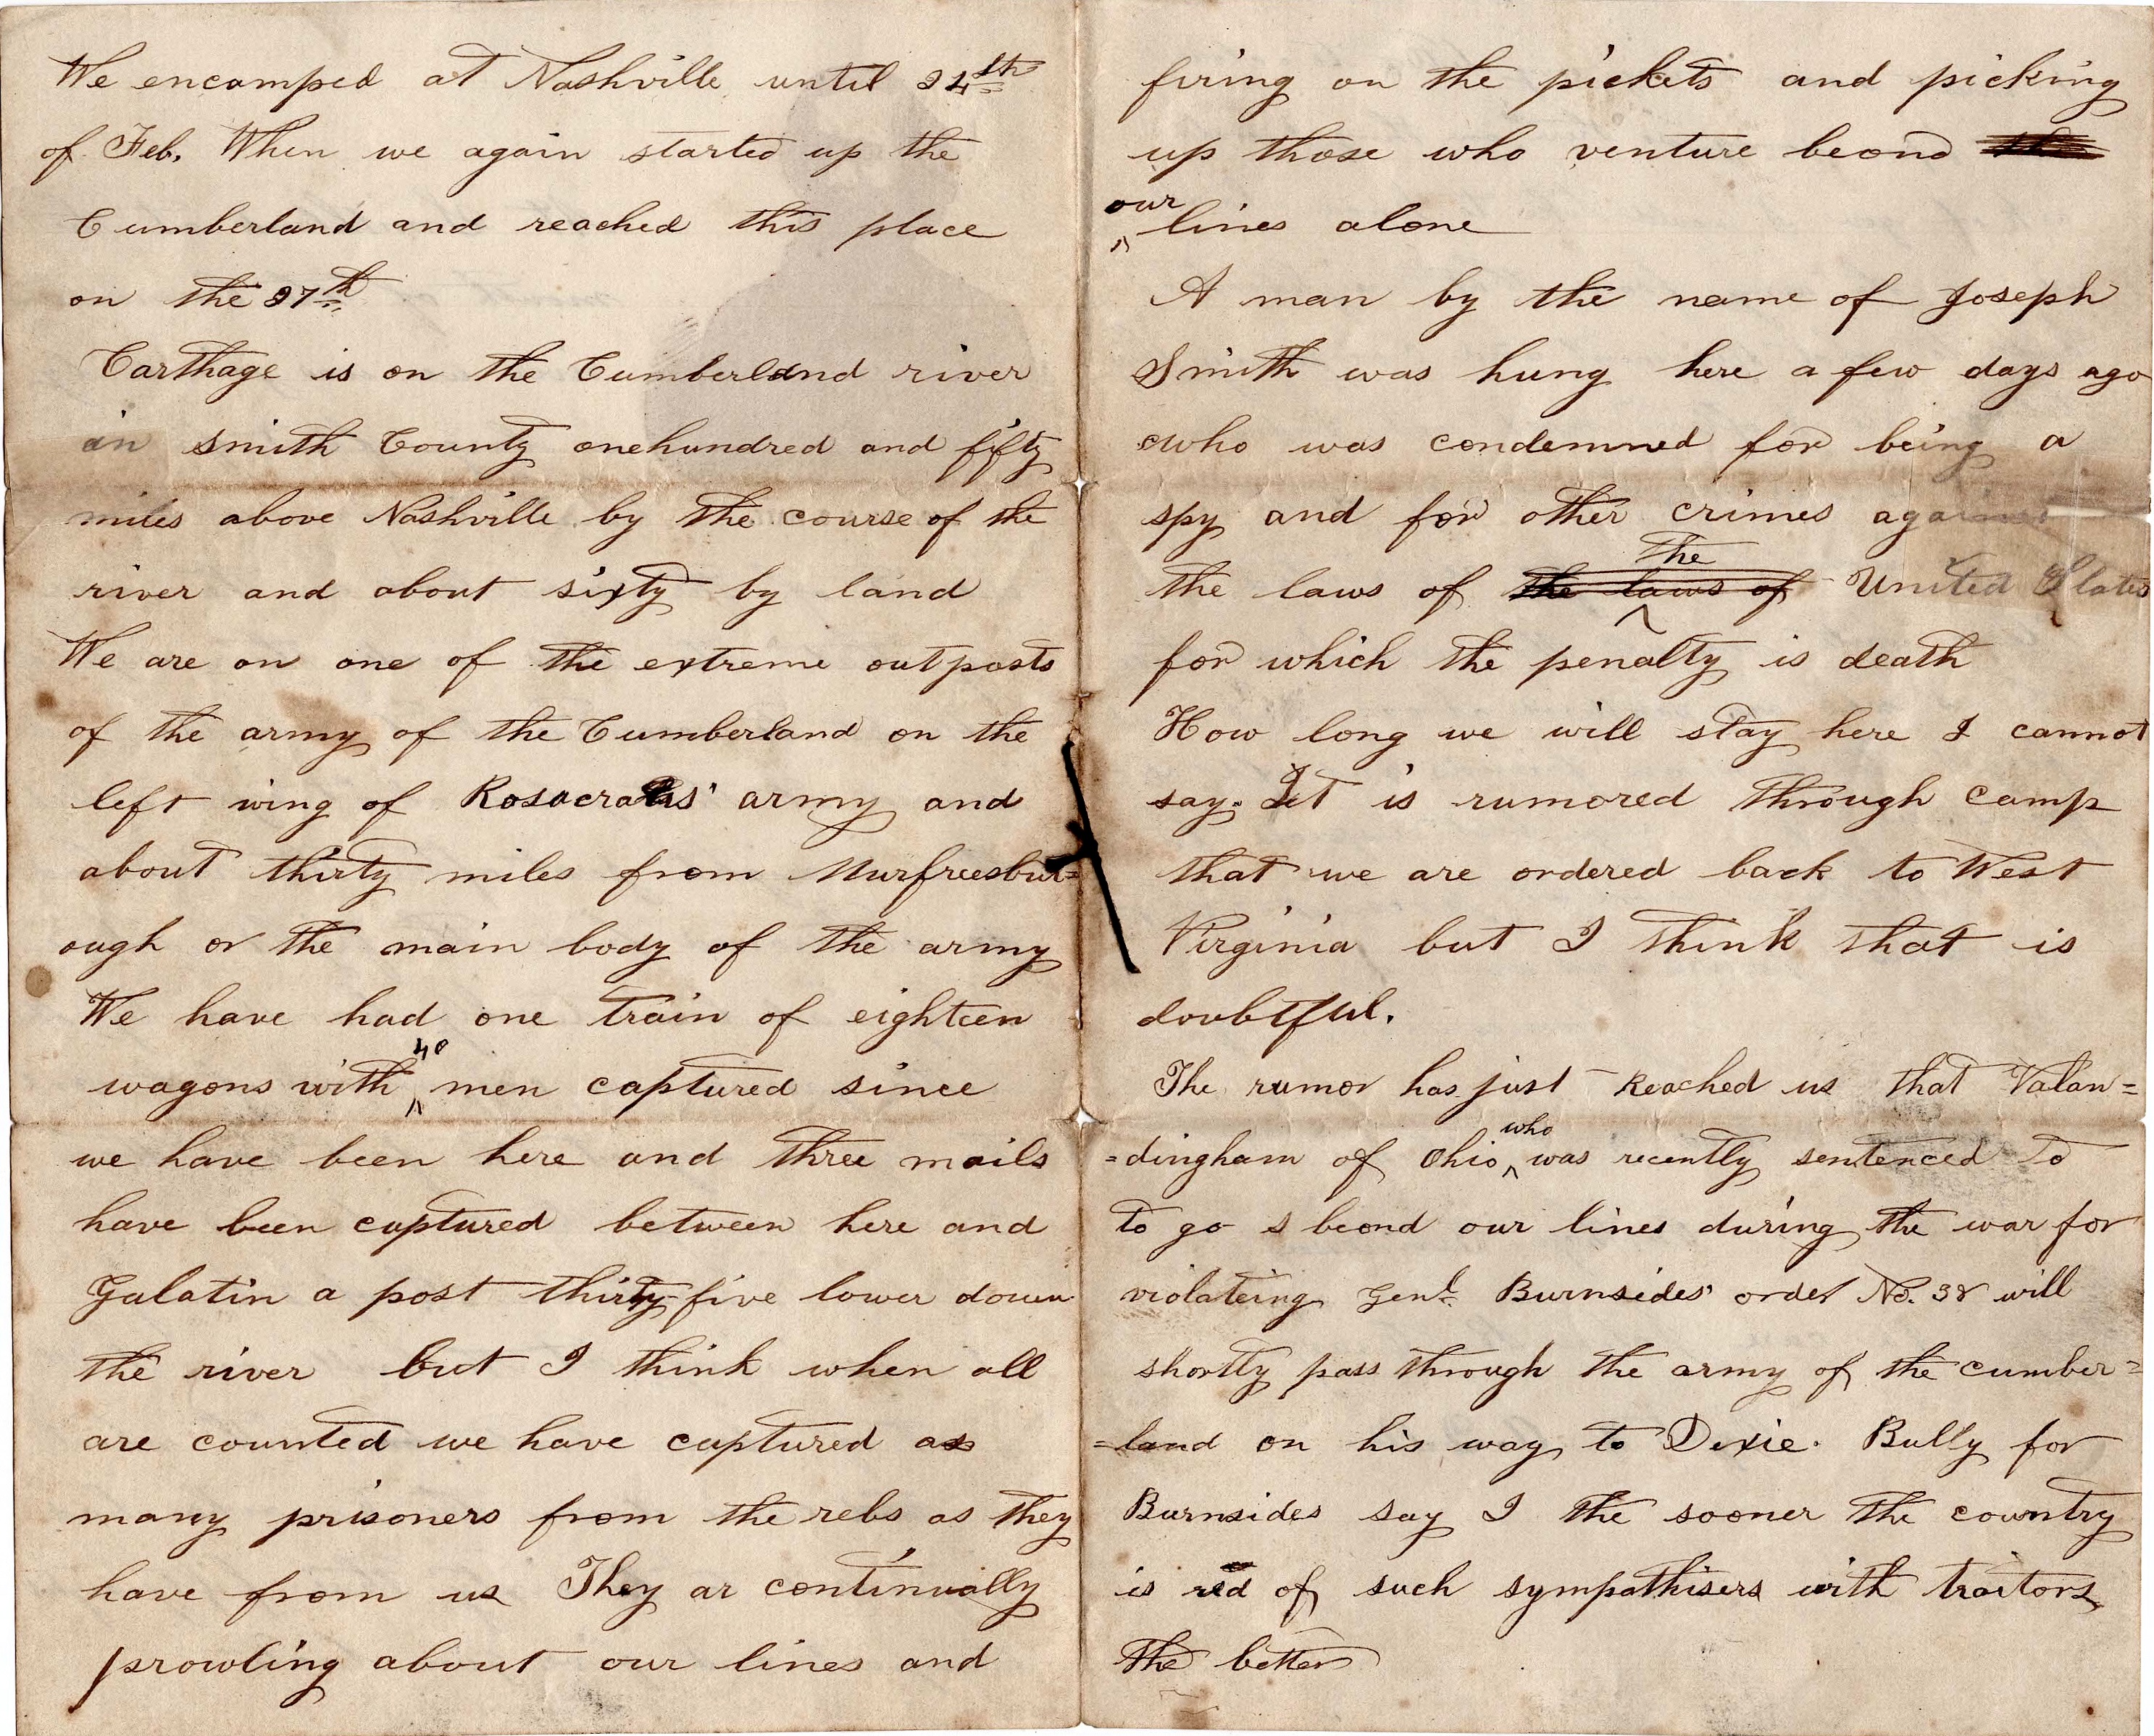 We encamped at Nashville until 24th
of Feb. When we again started up the
Cumberland and reached this place
on the 27th
Carthage is on the Cumberland river
in Smith County onehundred and fifty
miles above Nashville by the course of the
river and about sixty by land
We are on one of the extreme outposts
of the army of the Cumberland on the
left wing of Rosacrans' army and
about thirty miles from Murfreesbur=
ough or the main body of the army
We have had one train of eighteen
wagons with 40 men captured since
we have been here and three mails
have been captured between here and
Galatin a post thirty five lower down
the river but I think when all
are counted we have captured as
many prisoners from the rebs as they
have from us They ar continually
prowling about our lines and
firing on the pickets and picking
up those who venture beond the
our lines alone
A man by the name of Joseph
Smith was hung here a few days ago
who was condemned for being a
spy and for other crimes against
the laws of the laws of the United States
for which the penalty is death
How long we will stay here I cannot
say. It is rumored through camp
that we are ordered back to West
Virginia but I think that is
doubtful.
The rumor has just Reached us that Valan=
=dingham of Ohio who was recently sentenced to
to go s beond our lines during the war for
violateing Genl. Burnsides' order No. 38 will
shortly pass through the army of the cumber=
=land on his way to Dixie. Bully for
Burnsides say I the sooner the country
is rid of such sympathisers with traitors
the better